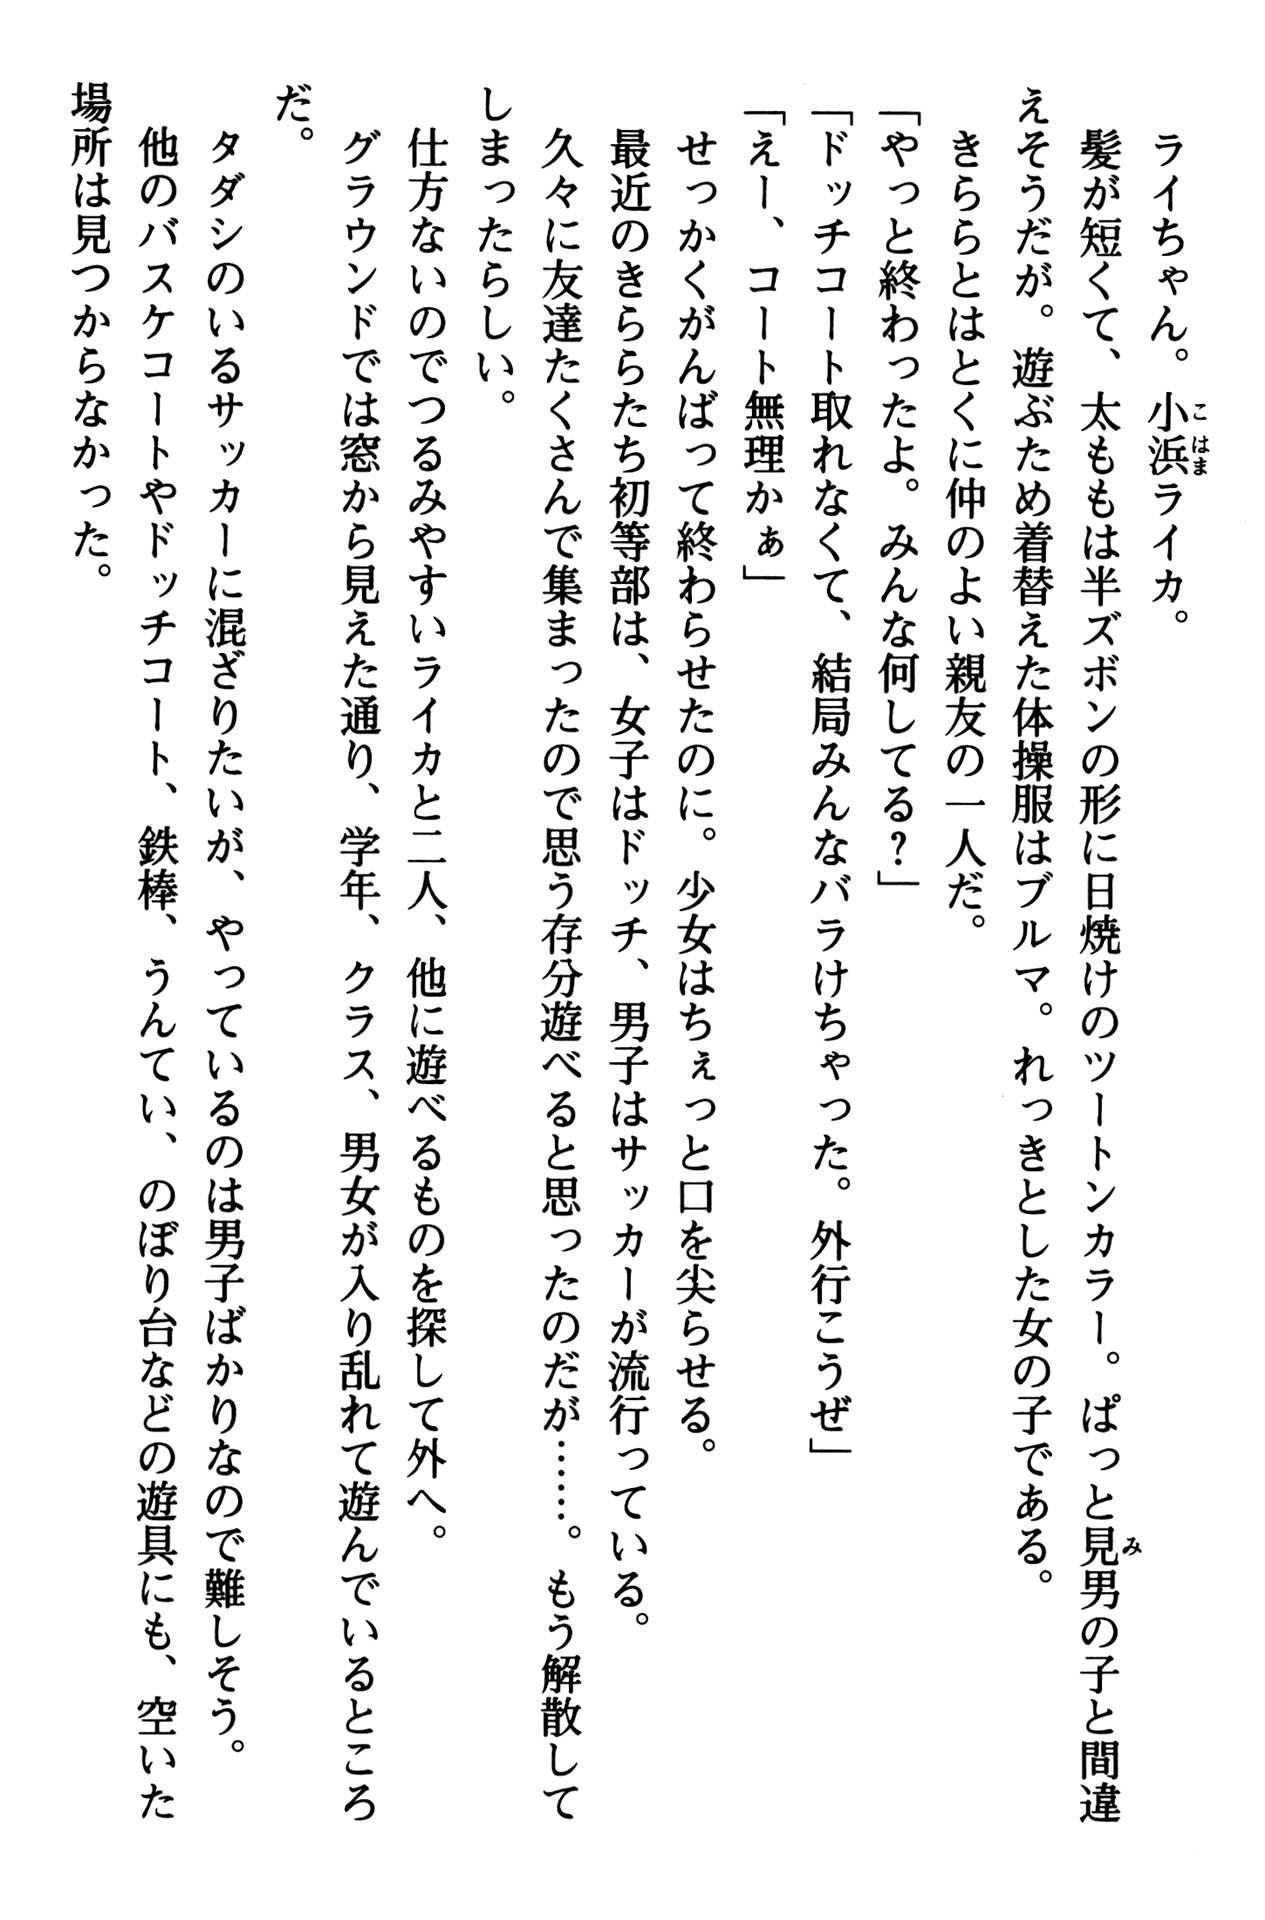 ライちゃん。小浜ライカ。
髪が短くて、太ももは半ズボンの形に日焼けのツートンカラー。ぱっと見男の子と間違
えそうだが。遊ぶため着替えた体操服はブルマ。れっきとした女の子である。
きららとはとくに仲のよい親友の一人だ。
「やっと終わったよ。みんな何してる？」
「ドッチコート取れなくて、結局みんなバラけちゃった。外行こうぜ」
「えー、コート無理かぁ」
せっかくがんばって終わらせたのに。少女はちぇっと口を尖らせる。
最近のきららたち初等部は、女子はドッチ、男子はサッカーが流行っている。
久々に友達たくさんで集まったので思う存分遊べると思ったのだが……。もう解散して
しまったらしい。
仕方ないのでつるみやすいライカと二人、他に遊べるものを探して外へ。
グラウンドでは窓から見えた通り、学年、クラス、男女が入り乱れて遊んでいるところ
だ。
タダシのいるサッカーに混ざりたいが、やっているのは男子ばかりなので難しそう。
他のバスケコートやドッチコート、鉄棒、うんてい、のぼり台などの遊具にも、空いた
場所は見つからなかった。